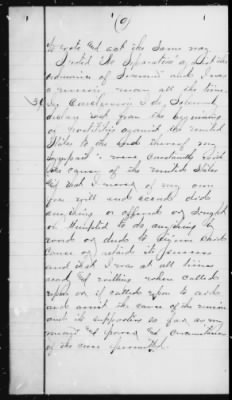 (9)
to vote and act the same way
I voted the Separation or Lost the
ordinance of Secession which I was
a union man all the time
39 I do Solemnly
declare that from the beginning
of hostilities against the United
States to the End thereof my
Sympathies were Constantly with
the cause of the United States
& that I never of my own
free will and accord did
anything or offered or Sought
or Attempted to do anything by
words or deeds to injure Said
Cause or retard its Success
and that I was at all times
ready & willing when called
upon or if called upon to aid
and assist the cause of the union
and its supporters so far as my
means & power & circumstances
of the case permitted.